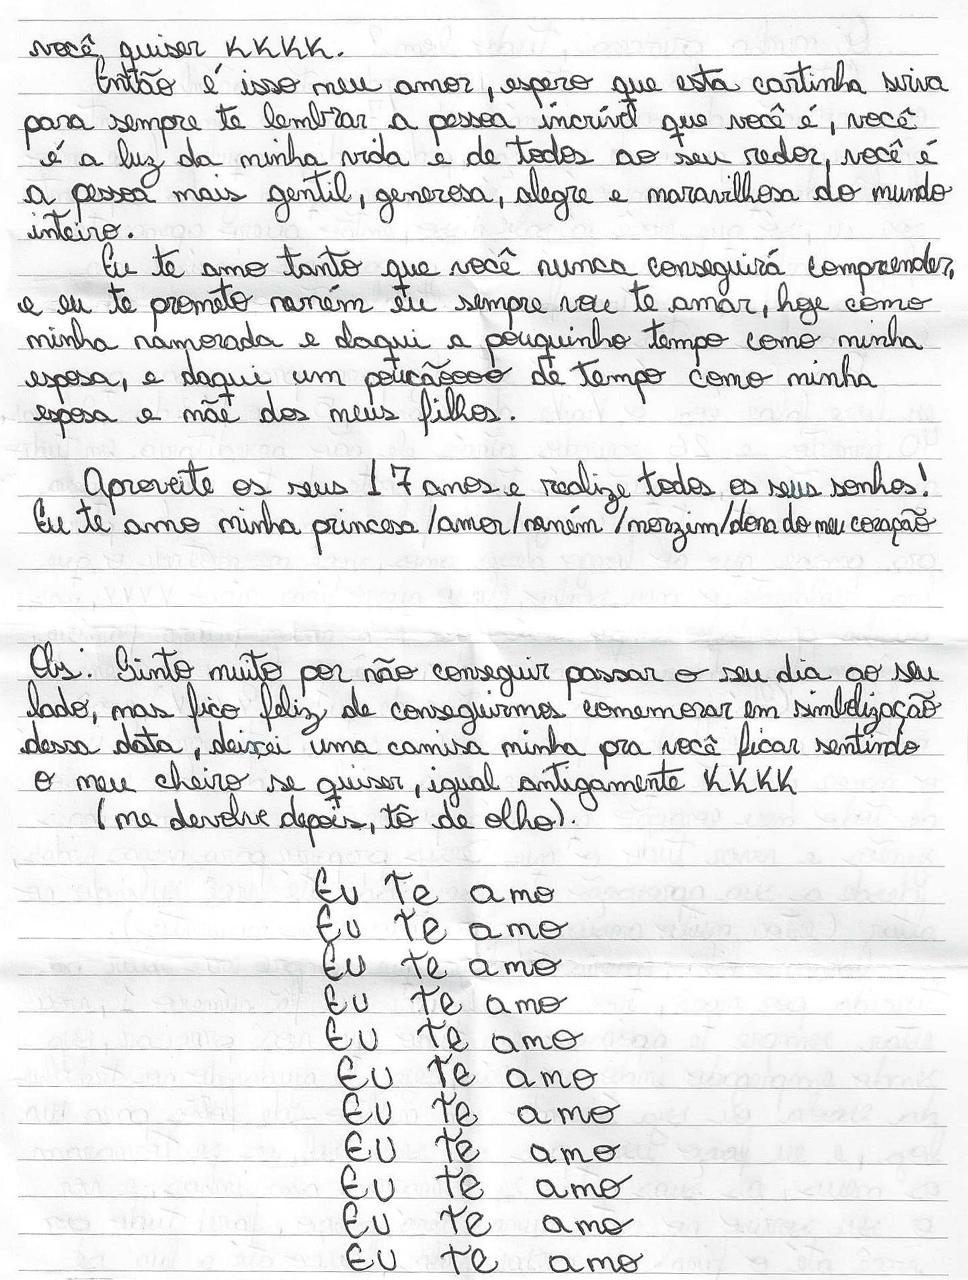 você quiser KKKK.
Então é isso meu amor, espero que esta cartinha sirva
para sempre te lembrar a pessoa incrível que você é, você
é a luz da minha vida e de todos ao seu redor, você é
a pessoa mais gentil, generosa, alegre e maravilhosa do mundo
inteiro.
Eu te amo tanto que você nunca conseguirá compreender,
e eu te prometo neném eu sempre vou te amar, hoje como
minha namorada e daqui a pouquinho tempo como minha
esposa, e daqui um poucãoooo de tempo como minha
esposa e mãe dos meus filhos.
Aproveite os seus 17 anos e realize todos os seus sonhos!
Eu te amo minha princesa /amor/neném /morzim/dona do meu coração
Obs: Sinto muito por não conseguir passar o seu dia ao seu
lado, mas fico feliz de conseguirmos comemorar em simbolização
dessa data, deixei uma camisa minha pra você ficar sentindo
o meu cheiro se quiser, igual antigamente KKKK
(me devolve depois, tô de olho).
Eu te amo
Eu te amo
Eu te amo
Eu te amo
Eu te amo
Eu te amo
Eu te amo
Eu te amo
Eu te amo
Eu te amo
Eu te amo